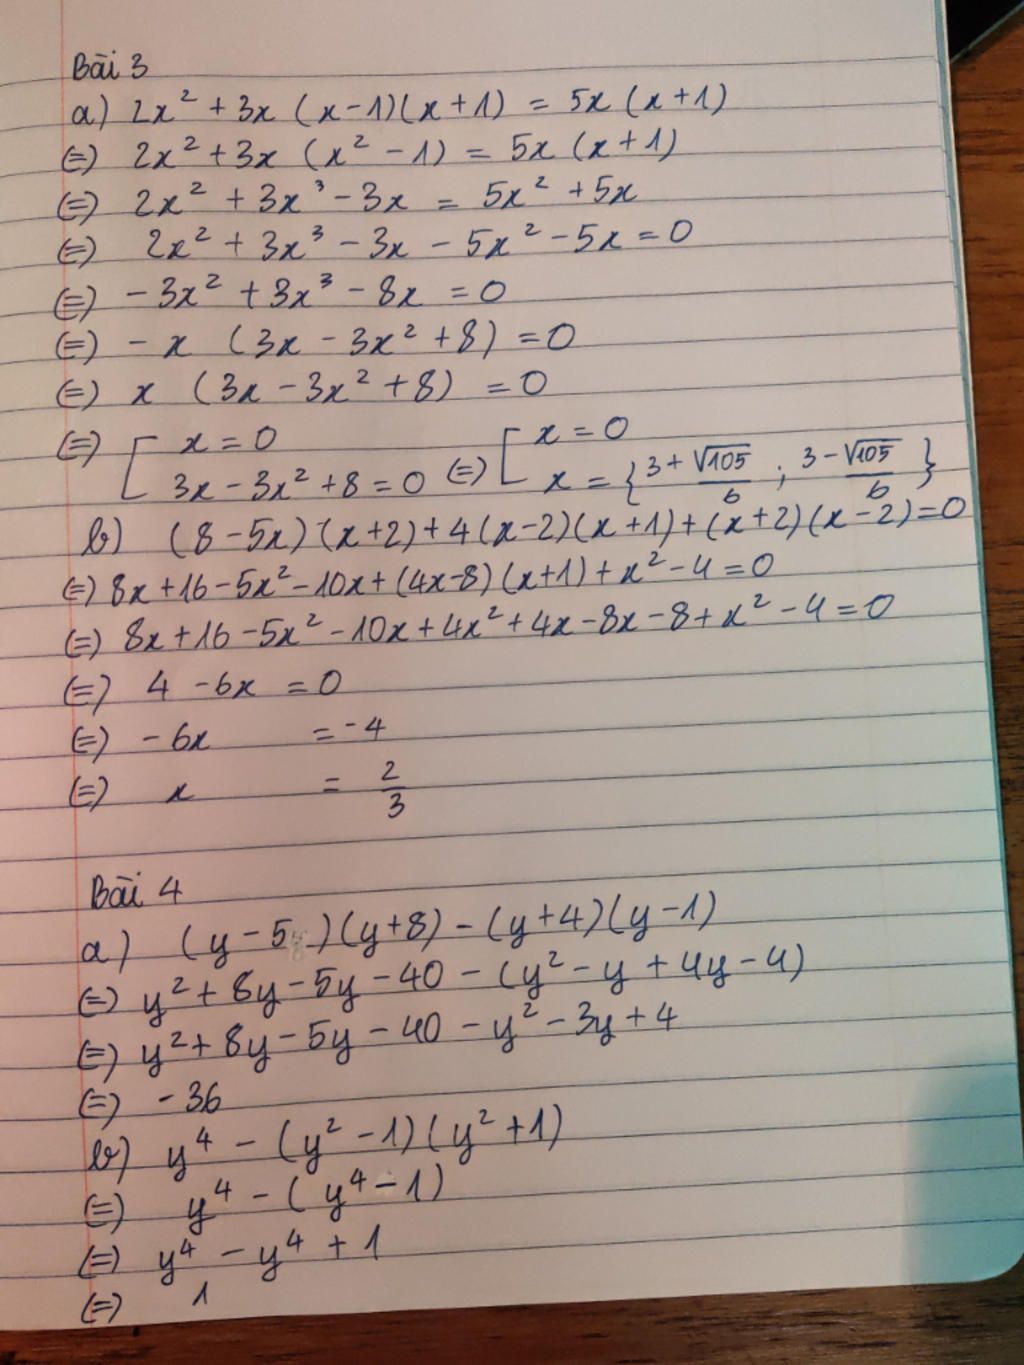 Bài 3
a) 2x² + 3x (x-1)(x+1) = 5x (x+1)
(=) 2x² + 3x (x² - 1) = 5x (x+1)
(=) 2x² + 3x³ - 3x = 5x² + 5x
(=) 2x² + 3x³ - 3x - 5x² - 5x = 0
(=) - 3x² + 3x³ - 8x = 0
(=) - x (3x - 3x² + 8) = 0
(=) x (3x - 3x² + 8) = 0
(=) [ x = 0 (=) [ x = 0
3x - 3x² + 8 = 0 x = {3+√105/6 ; 3-√105/6}
b) (8 - 5x) (x+2) + 4(x-2)(x+1) + (x+2)(x-2) = 0
(=) 8x + 16 - 5x² - 10x + (4x-8)(x+1) + x² - 4 = 0
(=) 8x + 16 - 5x² - 10x + 4x² + 4x - 8x - 8 + x² - 4 = 0
(=) 4 - 6x = 0
(=) - 6x = -4
(=) x = 2/3
Bài 4
a) (y - 5)(y+8) - (y+4)(y-1)
(=) y² + 8y - 5y - 40 - (y² - y + 4y - 4)
(=) y² + 8y - 5y - 40 - y² - 3y + 4
(=) - 36
b) y⁴ - (y² - 1)(y² + 1)
(=) y⁴ - (y⁴ - 1)
(=) y⁴ - y⁴ + 1
(=) 1